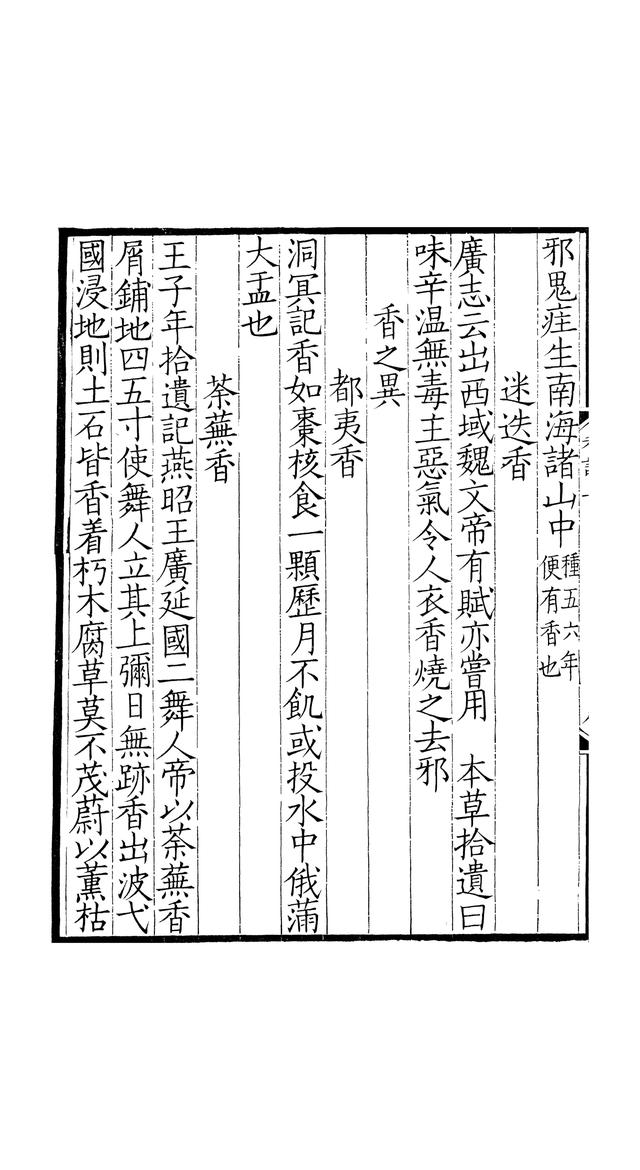 邪鬼疰生南海諸山中種五六年便有香也
迷迭香
廣志云出西域魏文帝有賦亦嘗用　本草拾遺曰
味辛温無毒主惡氣令人衣香燒之去邪
香之異
都夷香
洞冥記香如棗核食一顆歷月不飢或投水中俄滿
大盂也
荼蕪香
王子年拾遺記燕昭王廣延國二舞人帝以荼蕪香
屑鋪地四五寸使舞人立其上彌日無跡香出波弋
國浸地則土石皆香着朽木腐草莫不茂蔚以薰枯